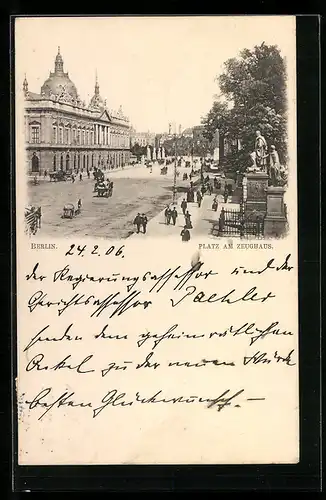 BERLIN.
PLATZ AM ZEUGHAUS.
24. 2. 06
der Regierungsassessor und der
Gerichtsassessor Paehler
senden dem geheimrätlichen
Onkel zu der neuen Würde
besten Glückwunsch. –